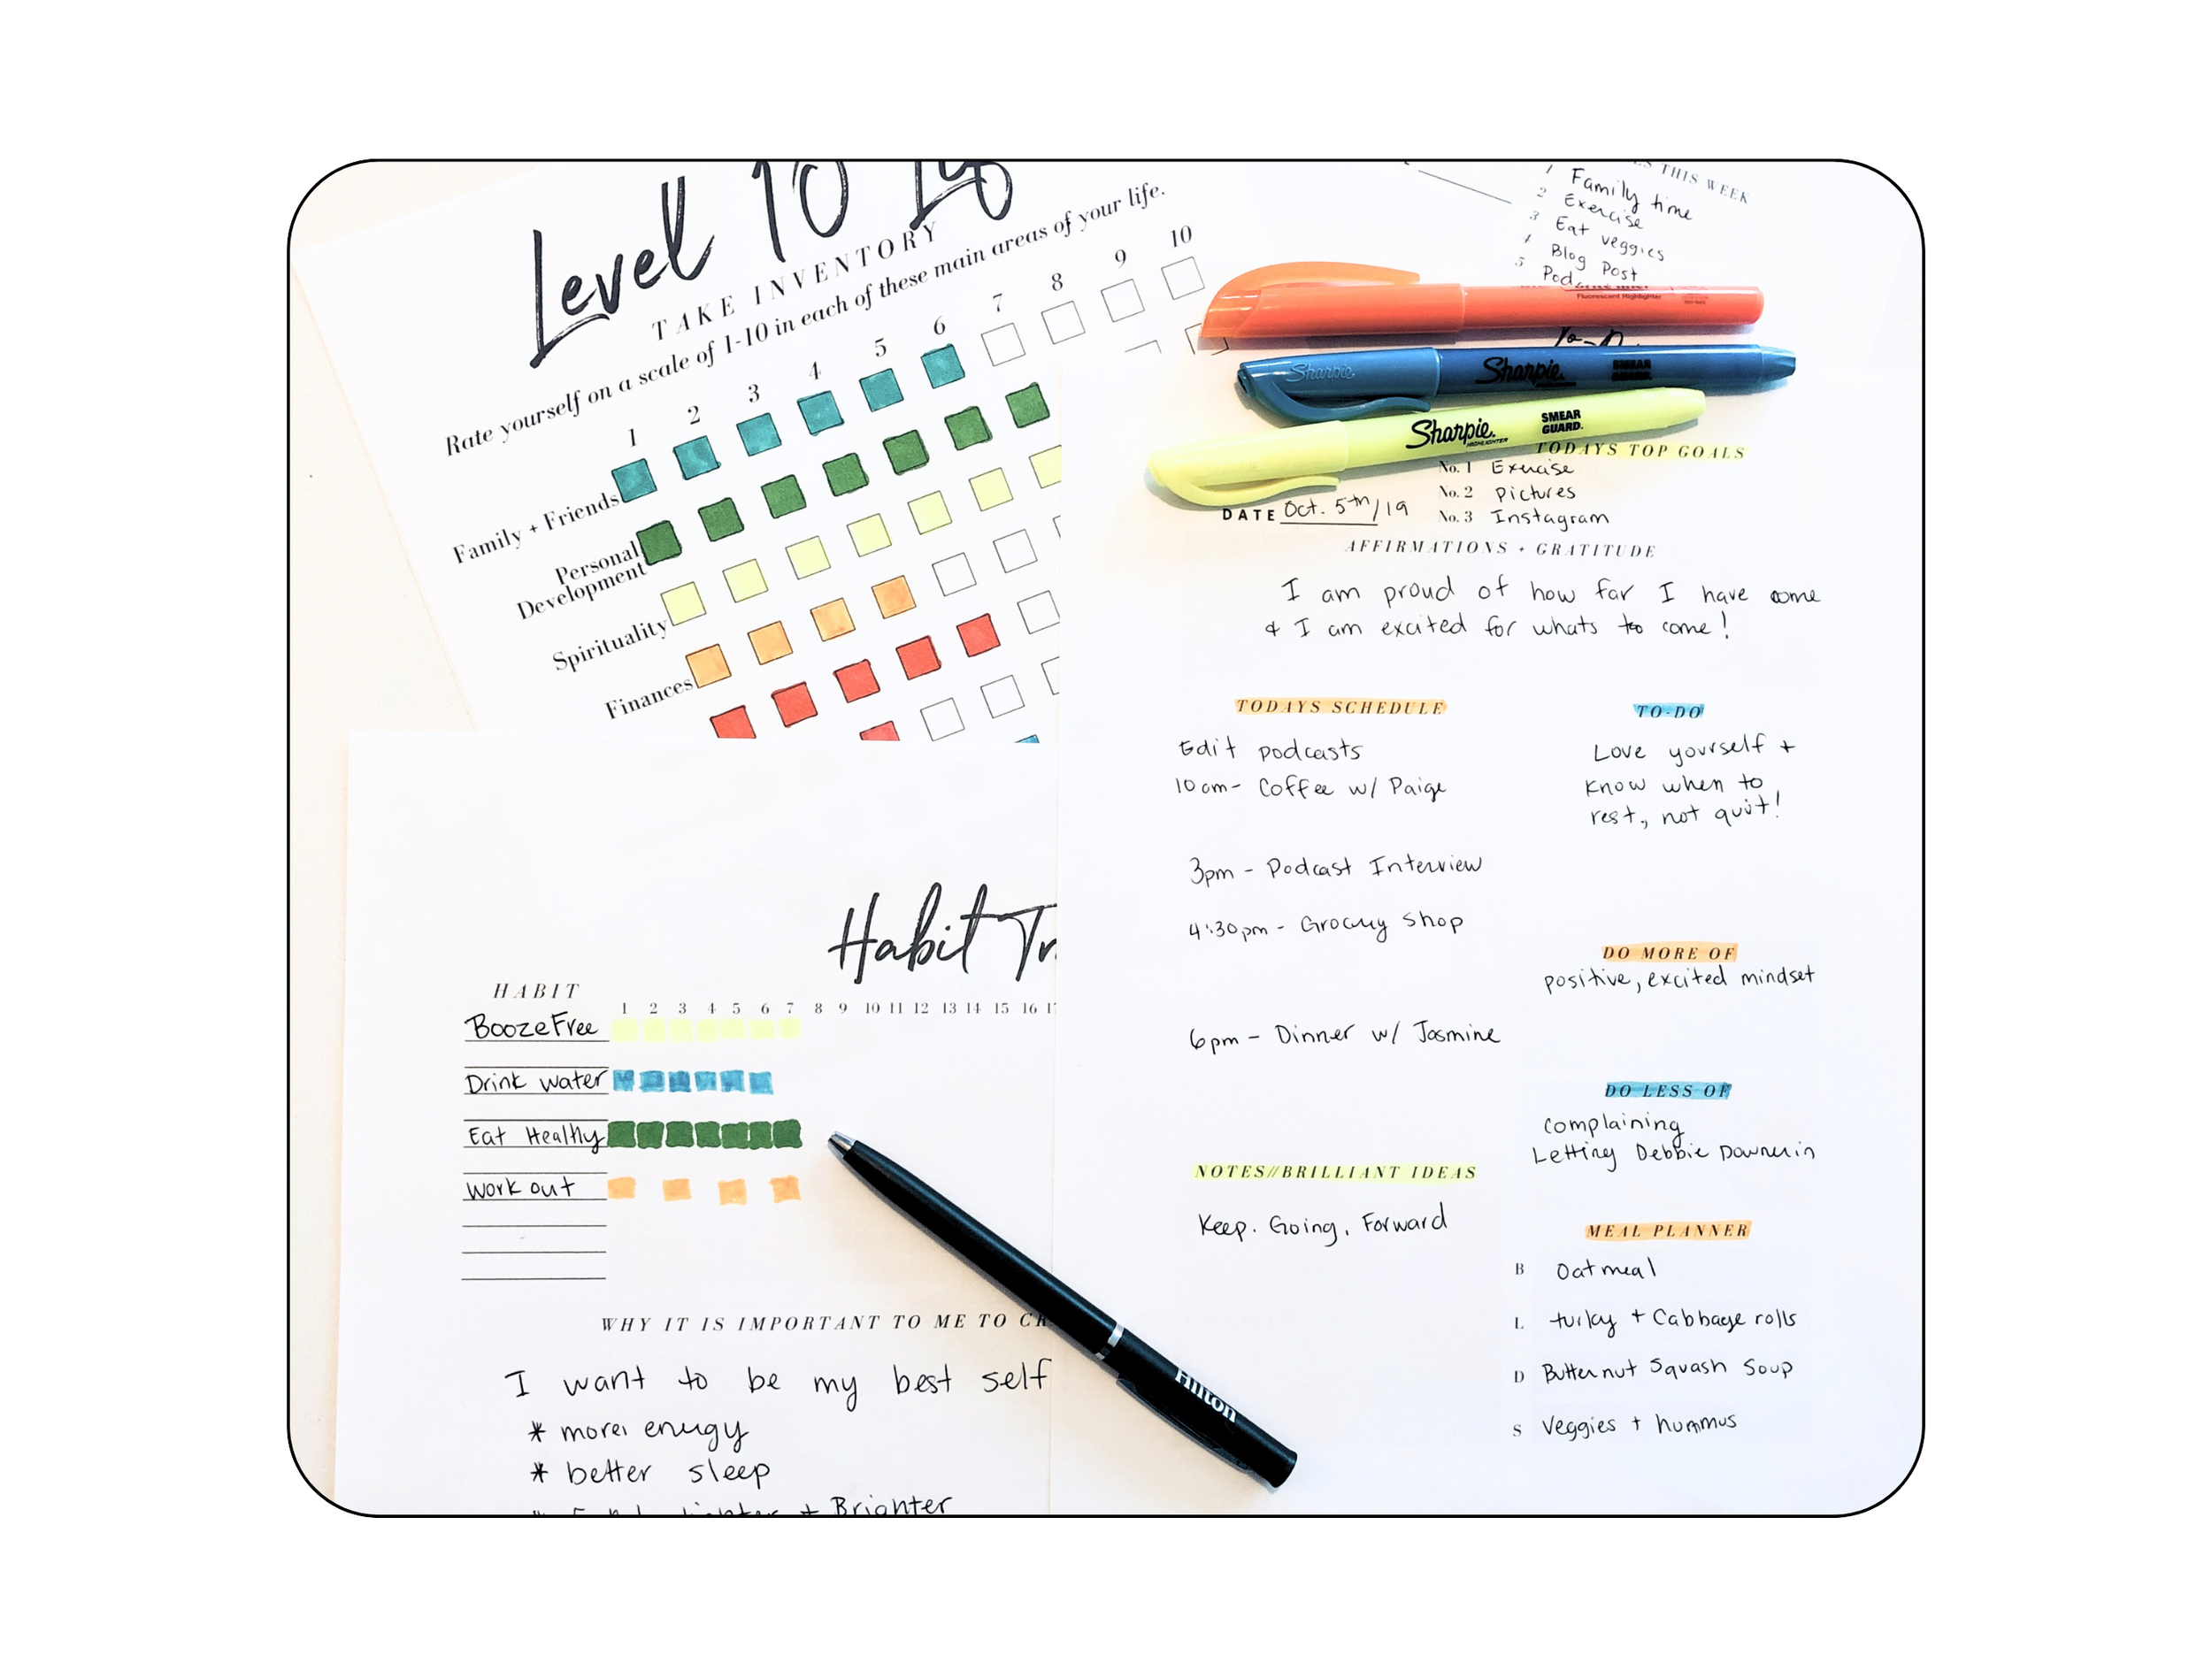 Level 10
TAKE INVENTORY
Rate yourself on a scale of 1-10 in each of these main areas of your life.
1 2 3 4 5 6 7 8 9 10
Family + Friends
Personal
Development
Spirituality
Finances
THIS WEEK
1 Family time
2 Exercise
3 Eat veggies
4 Blog Post
5 Pod
Fluorescent Highlighter
Sharpie Sharpie SMEAR GUARD.
Sharpie. HIGHLIGHTER SMEAR
GUARD.
TODAYS TOP GOALS
No. 1 Exercise
No. 2 Pictures
No. 3 Instagram
DATE Oct. 5th/19
AFFIRMATIONS + GRATITUDE
I am proud of how far I have come
& I am excited for whats to come!
TODAYS SCHEDULE
Edit podcasts
10am- Coffee w/ Paige
3pm - Podcast Interview
4:30pm - Grocery Shop
6pm - Dinner w/ Jasmine
NOTES//BRILLIANT IDEAS
Keep. Going. Forward
TO-DO
Love yourself +
know when to
rest, not quit!
DO MORE OF
positive, excited mindset
DO LESS OF
Complaining
Letting Debbie Downer in
MEAL PLANNER
B Oatmeal
L turkey + Cabbage rolls
D Butternut Squash Soup
S Veggies + hummus
Habit Tr
HABIT
1 2 3 4 5 6 7 8 9 10 11 12 13 14 15 16 17
Booze Free
Drink water
Eat Healthy
Work out
WHY IT IS IMPORTANT TO ME TO CR
I want to be my best self
* more energy
* better sleep
+ Brighter
Hilton